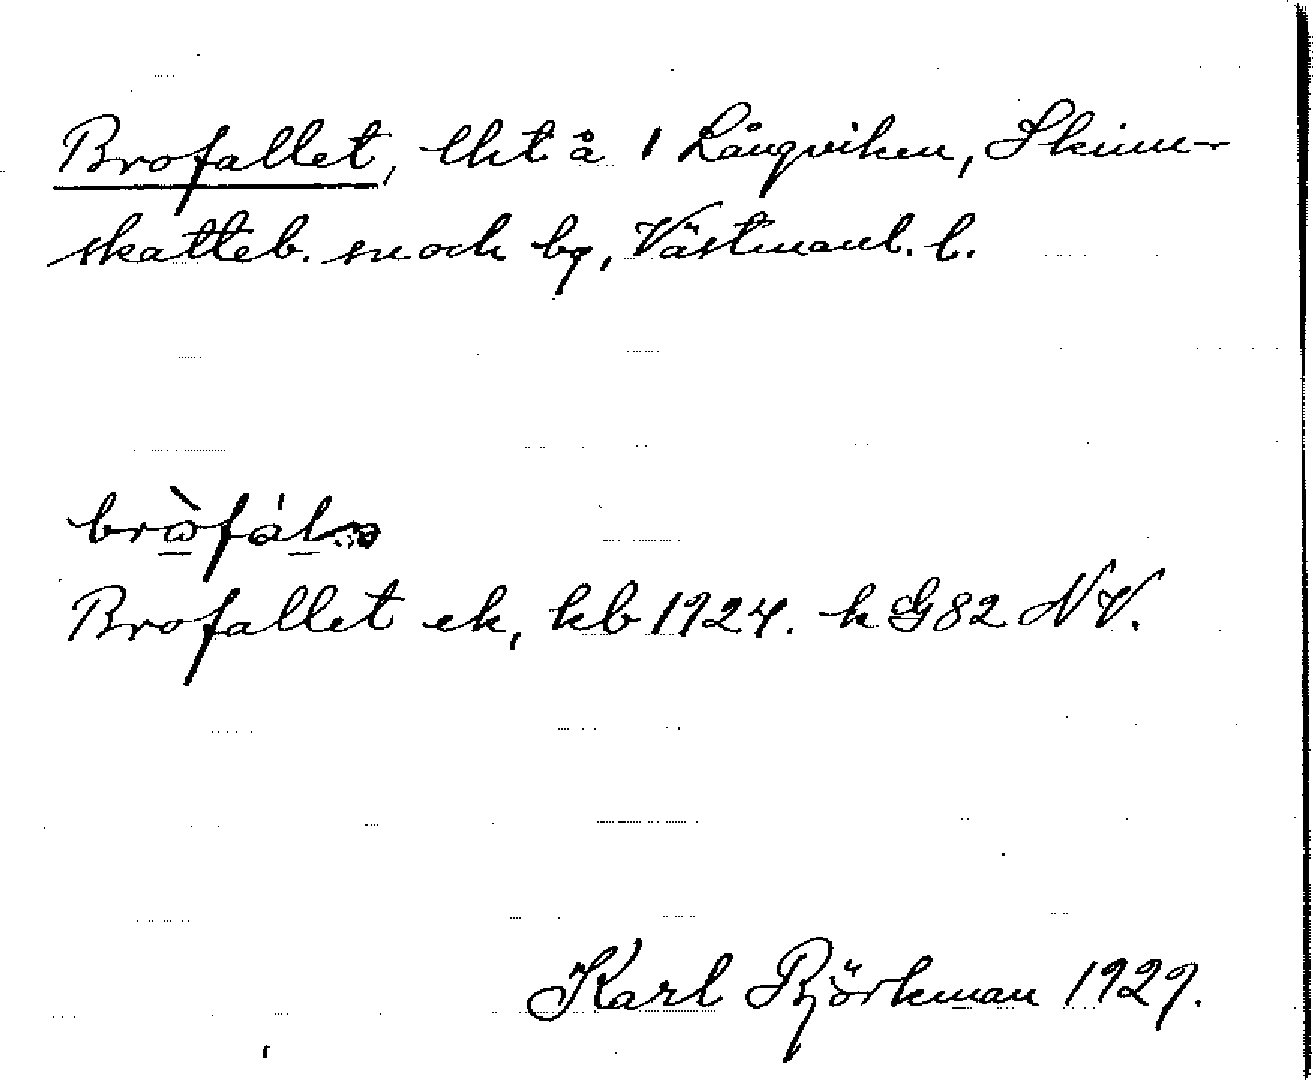 Brofallet, lht å 1 Långviken, Skinn-
skatteb. sn och bg, Västmanl. l.
Brofallet ek, kb 1924. k G82 NV.
Karl Björkman 1929.